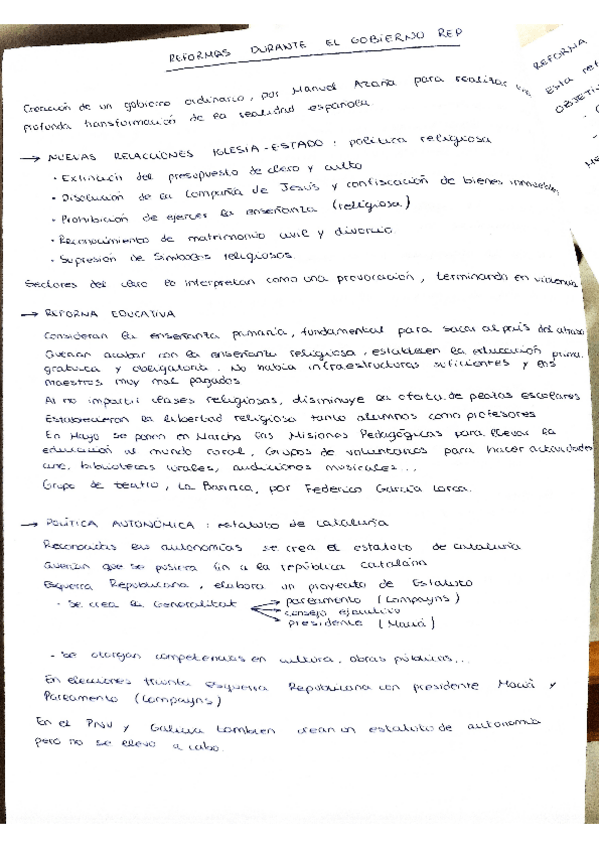 REFORMAS DURANTE EL GOBIERNO REP
Creación de un gobierno ordinario, por Manuel Azaña para realizar una
profunda transformación de la realidad española
→ NUEVAS RELACIONES IGLESIA-ESTADO: política religiosa
· Extinción del presupuesto de clero y culto
· Disolución de la Compañía de Jesús y confiscación de bienes inmuebles
· Prohibición de ejercer la enseñanza (religiosa)
· Reconocimiento de matrimonio civil y divorcio
· Supresión de símbolos religiosos.
Sectores del clero lo interpretan como una provocación, terminando en violencia
→ REFORMA EDUCATIVA
Consideran la enseñanza primaria, fundamental para sacar al país del atraso
Querían acabar con la enseñanza religiosa, establecen la educación prima.
gratuita y obligatoria. No había infraestructuras suficientes y los
maestros muy mal pagados
Al no impartir clases religiosas, disminuye la oferta de plazas escolares
Establecieron la libertad religiosa tanto alumnos como profesores
En Mayo se ponen en Marcha las Misiones Pedagógicas para llevar la
educación al mundo rural, Grupos de voluntarios para hacer actividades
cine, bibliotecas rurales, audiciones musicales...
Grupo de teatro, La Barraca, por Federico García Lorca.
→ POLÍTICA AUTONÓMICA: estatuto de Cataluña
Reconocidas las autonomías se crea el estatuto de cataluña
Querían que se pusiera fin a la república catalana
Esquerra Republicana, elabora un proyecto de Estatuto
- Se crea la Generalitat
parlamento (Companys)
consejo ejecutivo
presidente (Maciá)
- Se otorgan competencias en cultura, obras públicas...
En elecciones triunfa Esquerra Republicana con presidente Maciá y
Parlamento (Companys)
En el PNV y Galicia también crean un estatuto de autonomía
pero no se llevó a cabo.
REFORMA
Esta ref
OBJETIV